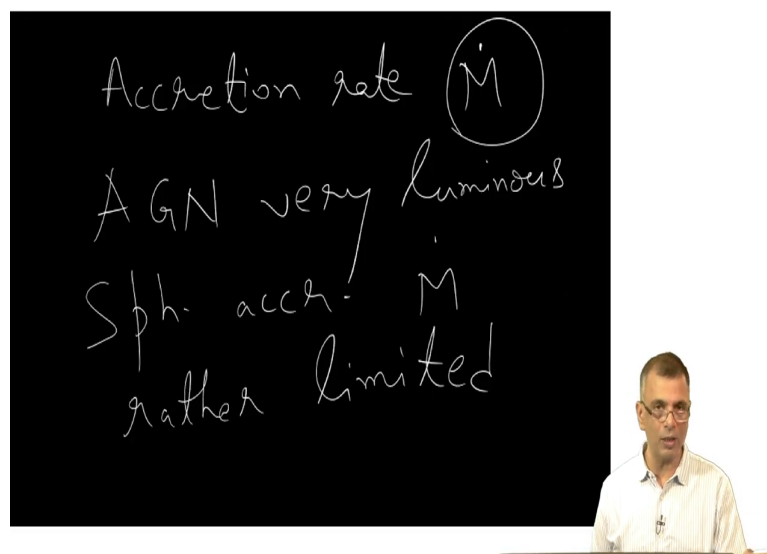 Accretion rate Ṁ
AGN very luminous
Sph. accr. Ṁ
rather limited